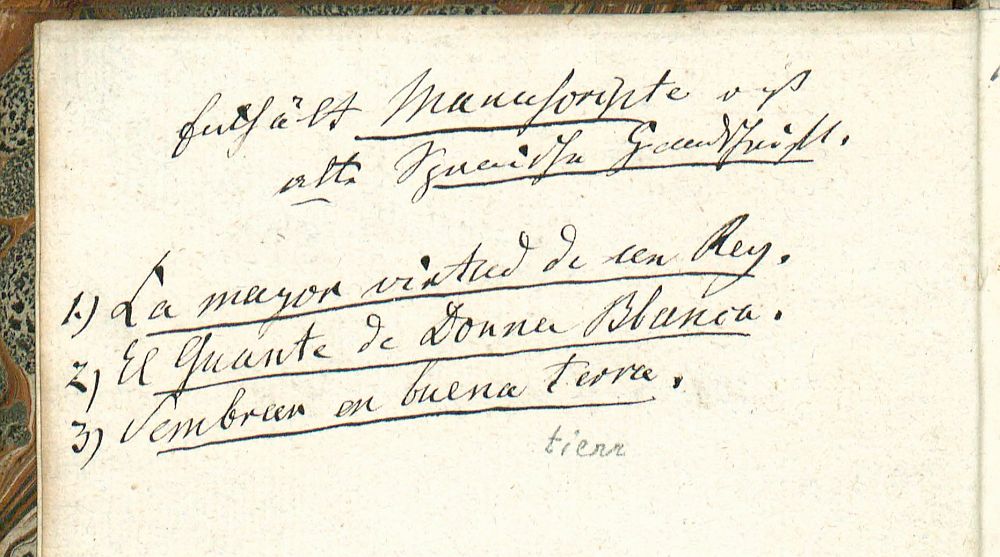 Enthält Manuscripte
alte Spanische Handschrift.
1.) La mayor virtud de un Rey.
2) El Guante de Donna Blanca.
3) Sembrar en buena terra.
tierr